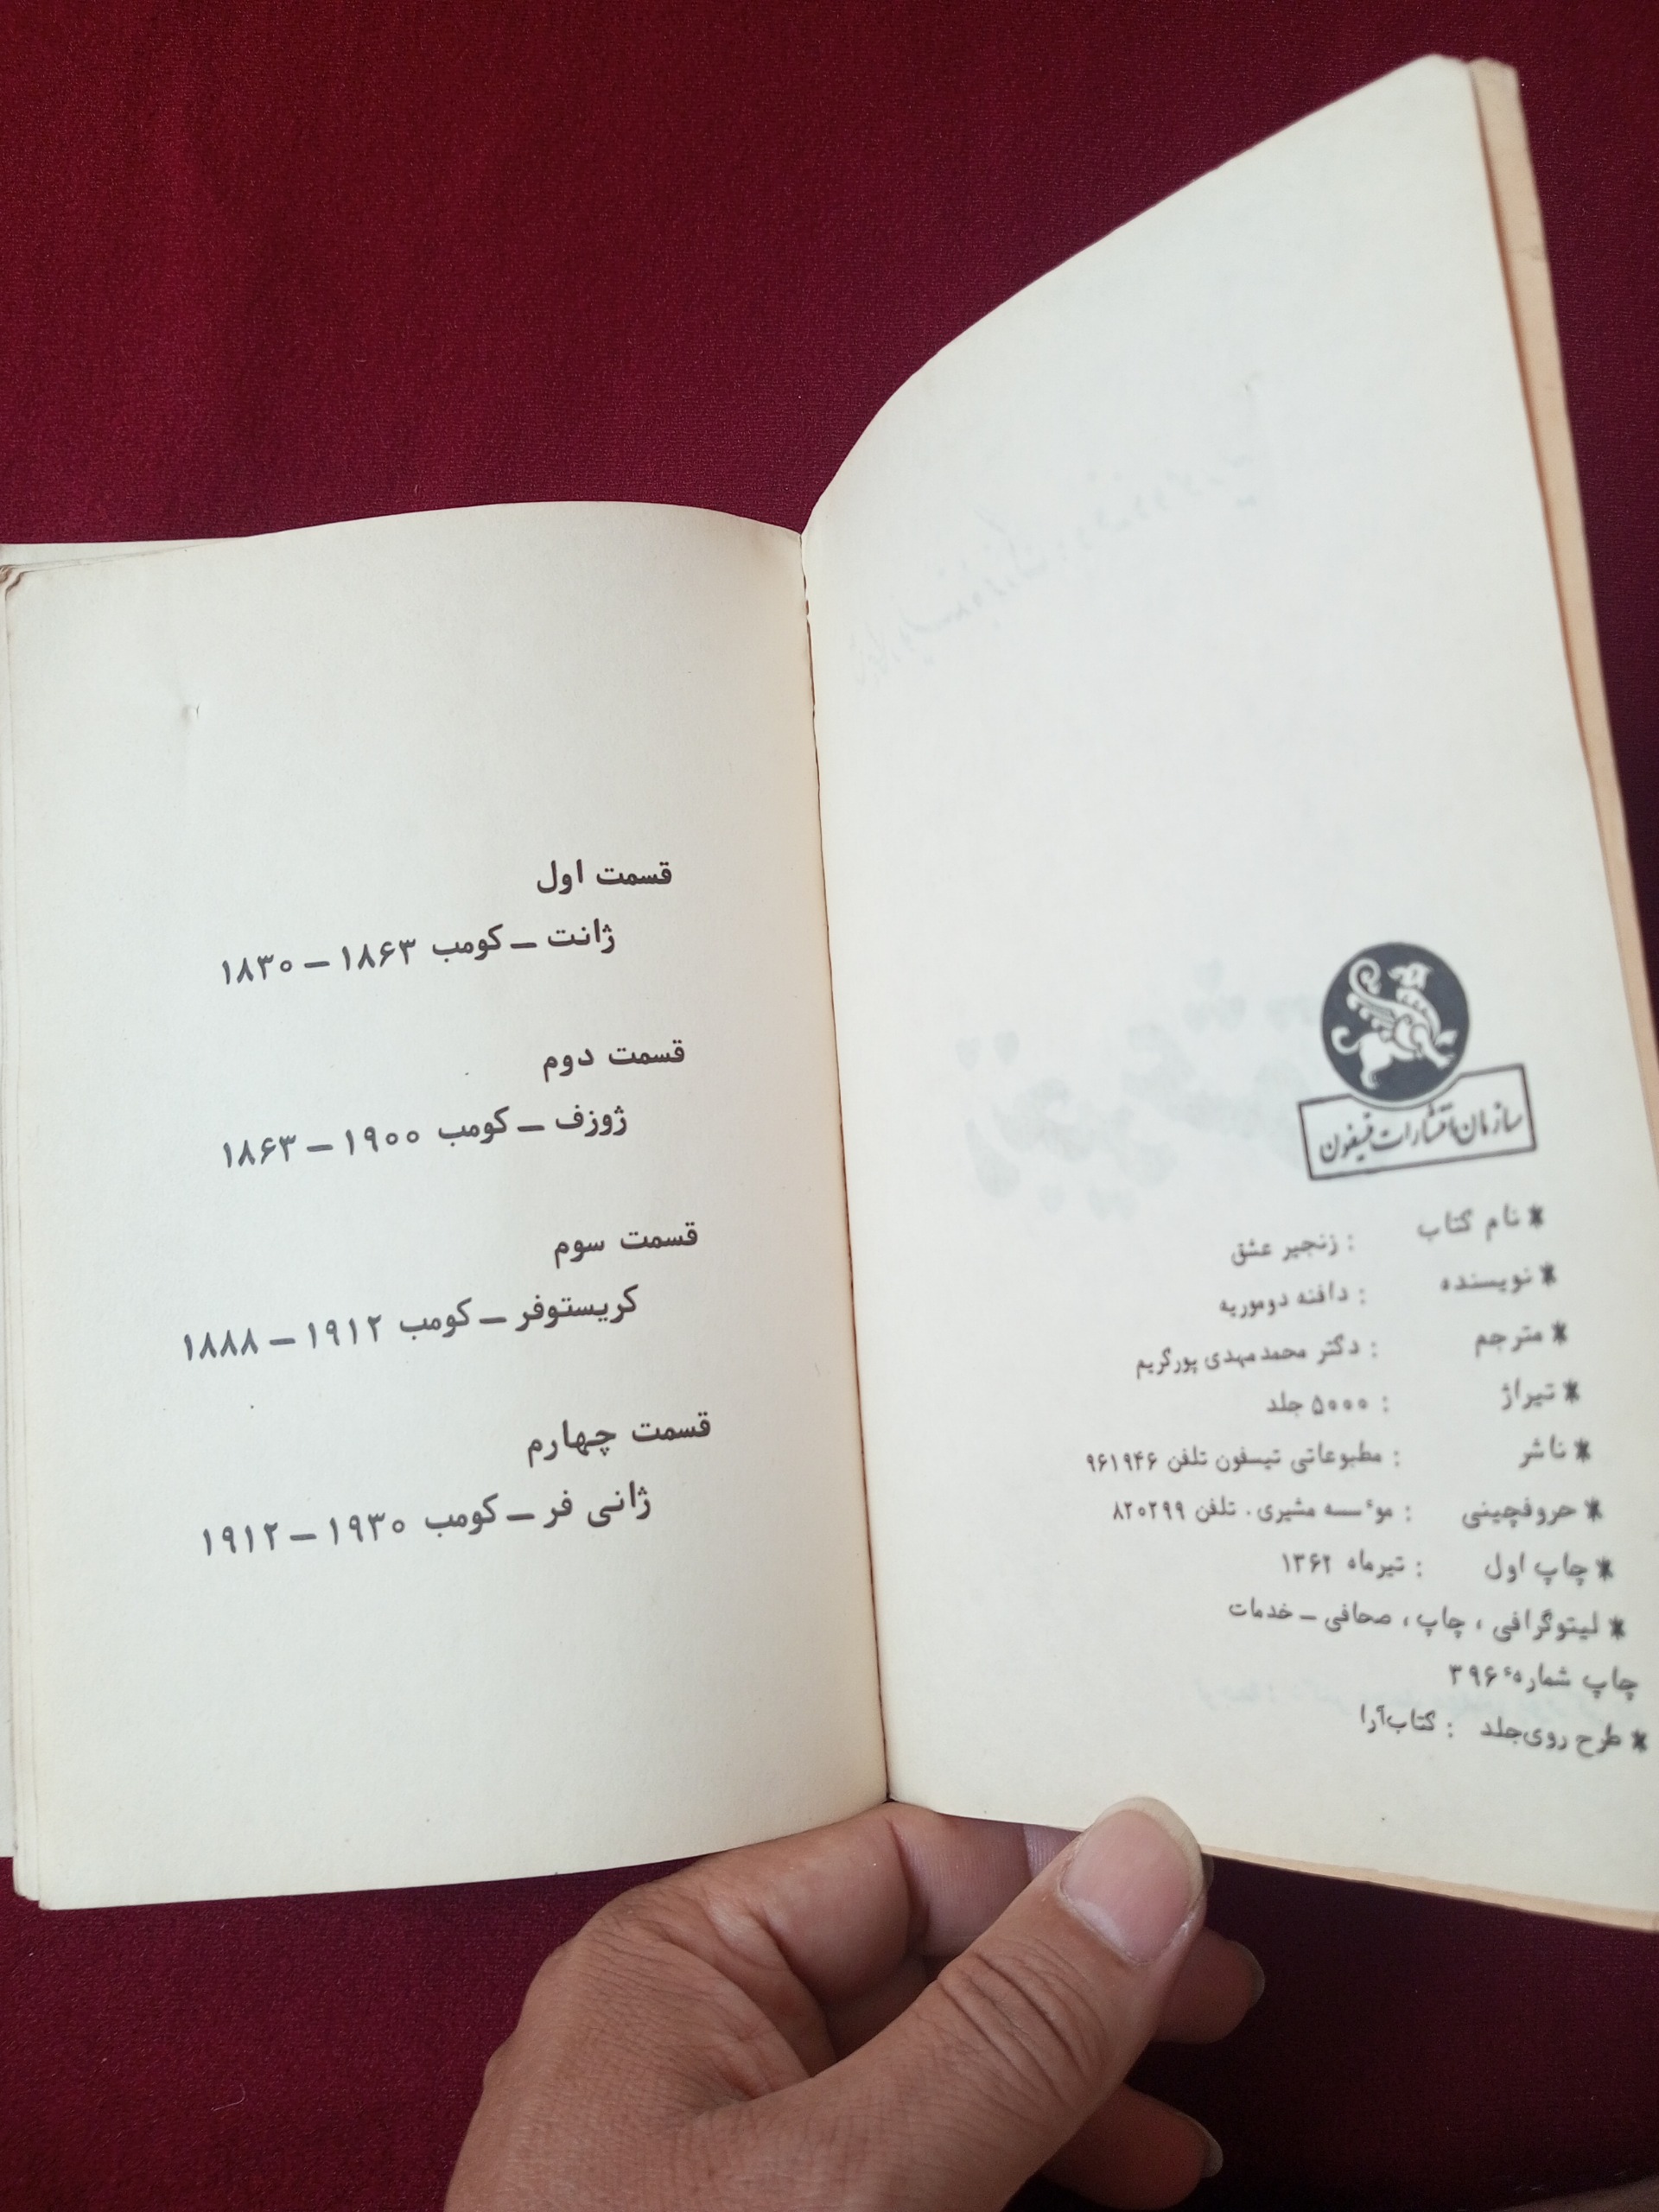 سازمان انتشارات تیسفون
* نام کتاب : زنجیر عشق
* نویسنده : دافنه دوموریه
* مترجم : دکتر محمدمهدی پورکریم
* تیراژ : ۵۰۰۰ جلد
* ناشر : مطبوعاتی تیسفون تلفن ۹۶۱۹۴۶
* حروفچینی : موٴسسه مشیری. تلفن ۸۲۰۲۹۹
* چاپ اول : تیرماه ۱۳۶۲
* لیتوگرافی ، چاپ ، صحافی – خدمات
چاپ شمارهٴ ۳۹۶
* طرح روی‌جلد : کتاب‌آرا
قسمت اول
ژانت – کومب ۱۸۶۳ – ۱۸۳۰
قسمت دوم
ژوزف – کومب ۱۹۰۰ – ۱۸۶۳
قسمت سوم
کریستوفر – کومب ۱۹۱۲ – ۱۸۸۸
قسمت چهارم
ژانی فر – کومب ۱۹۳۰ – ۱۹۱۲